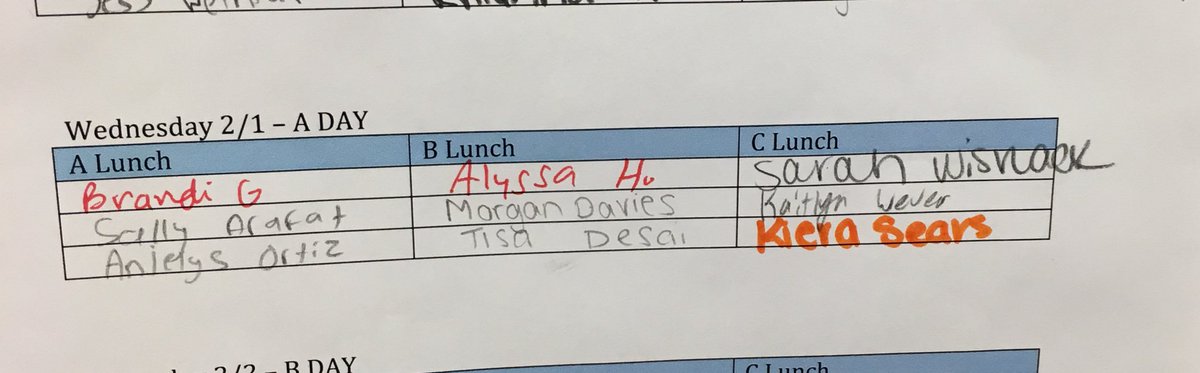 Wednesday 2/1 – A DAY
A Lunch B Lunch C Lunch
Brandi G Alyssa H. Sarah Wisnack
Sally Arafat Morgan Davies Kaitlyn Wever
Anielys Ortiz Tisa Desai Kiera Sears
2/2 – B DAY
C Lunch